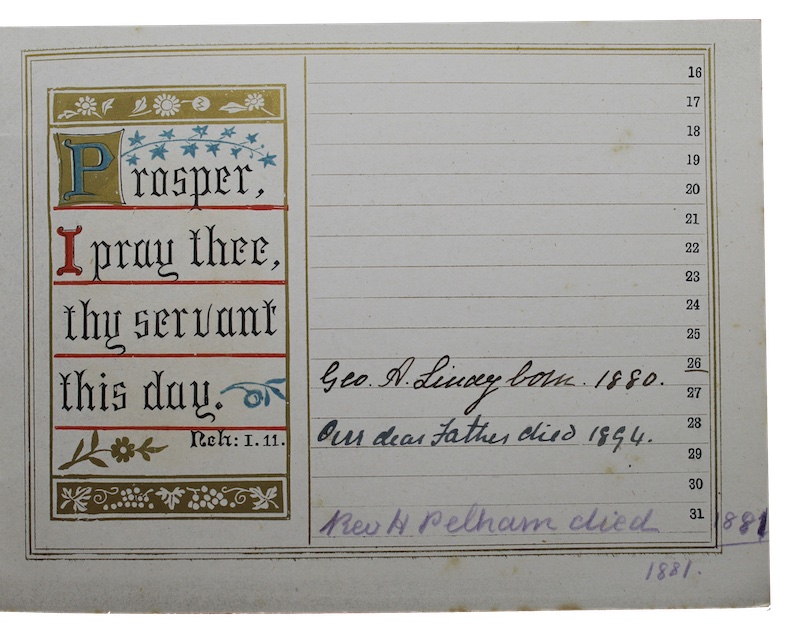 Prosper,
I pray thee,
thy servant
this day.
Neh: 1. 11.
16
17
18
19
20
21
22
23
24
25
26
Geo. A. born. 1880.
27
28
Our dear Father died 1894.
29
30
31
Rev H Pelham died 1881
1881.